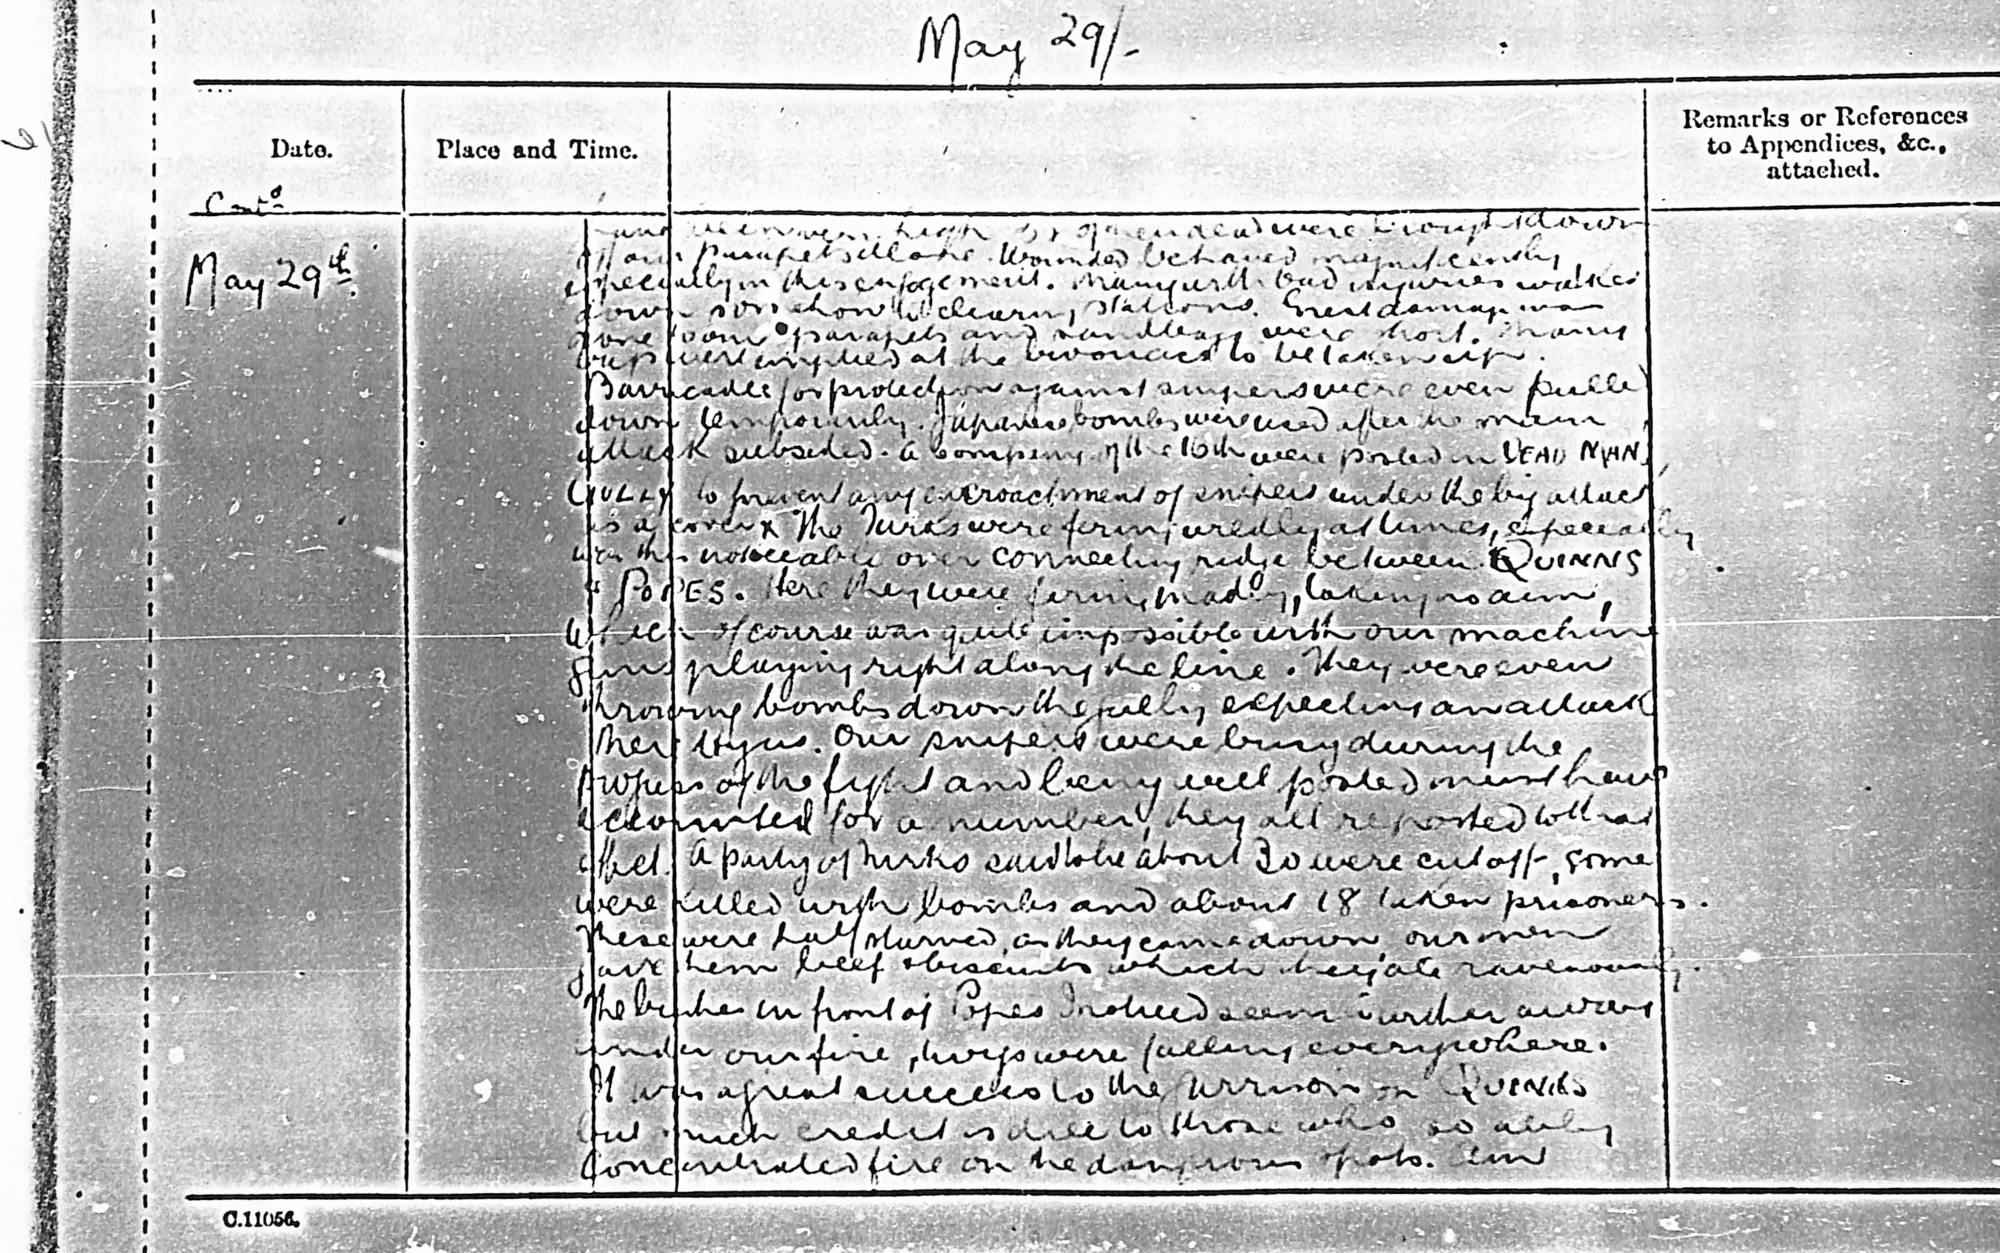 May 29/-
Date.
Place and Time.
Remarks or References
to Appendices, &c.,
attached.
Contd
May 29th.
have been very high of men dead were brought down
our parapets alone. Wounded behaved magnificently
especially in this engagement. Many with bad injuries walked
down somehow to clearing stations. Great damage was
done to our parapets and sandbags were short. Many
were emptied at the bivouacs to be taken up.
Barricades for protection against snipers were even pulled
down temporarily. Japanese bombs were used after the main
attack subsided. A Company of the 16th were posted in DEAD MANS
GULLY to prevent any encroachment of snipers under the big attack
as a cover x The Turks were firing wildly at times, especially
was this noticeable over connecting ridge between QUINNS
& POPES. Here they were firing madly, taking no aim,
which of course was quite impossible with our machine
guns playing right along the line. They were even
throwing bombs down the gully expecting an attack
there by us. Our snipers were busy during the
progress of the fight and being well posted must have
accounted for a number, they all reported to that
effect. A party of Turks said to be about 30 were cut off, some
were killed with bombs and about 18 taken prisoners.
These were half starved, as they came down our men
gave them beef & biscuits which they ate ravenously.
The bushes in front of Popes Indeed seem further away
under our fire, twigs were falling everywhere.
It was a great success to the garrison on QUINNS
but much credit is due to those who so ably
concentrated fire on the dangerous spots. Am
C.11056.